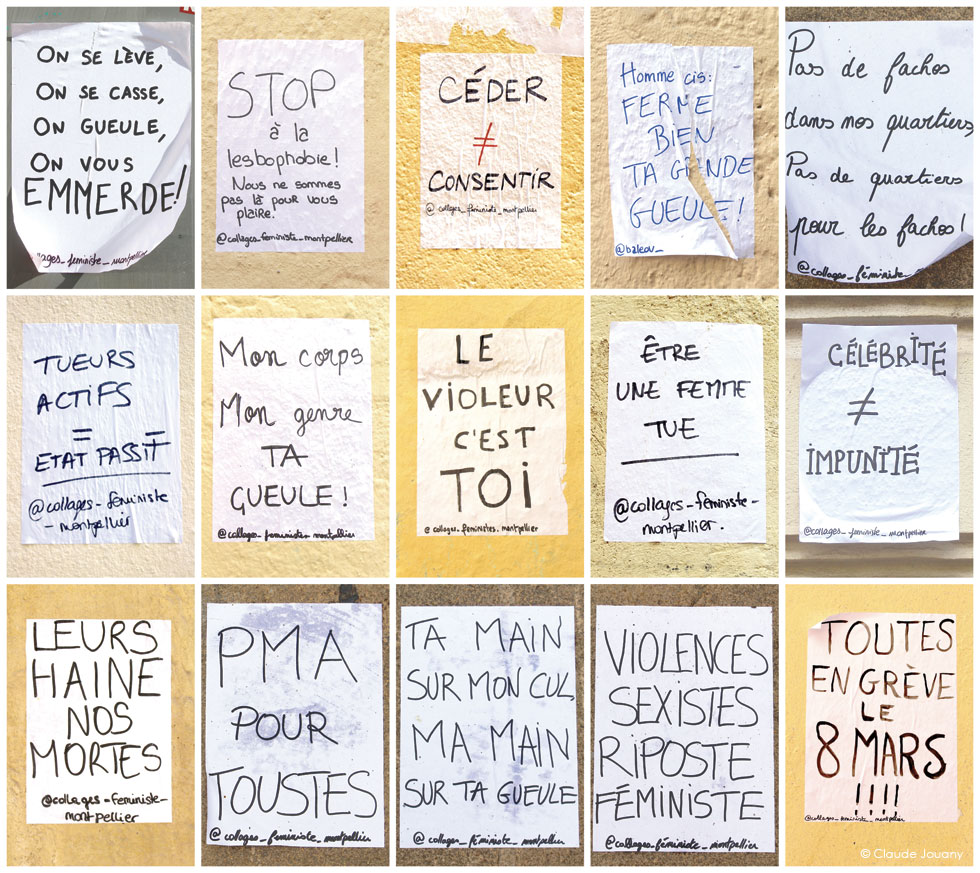 ON SE LÈVE,
ON SE CASSE,
ON GUEULE,
ON VOUS
EMMERDE!
ages_féministe_montpellier
STOP
à la
lesbophobie!
Nous ne sommes
pas là pour vous
plaire.
@collages_feministe_montpellier
CÉDER
≠
CONSENTIR
@collages_féministe_montpellier
Homme cis:
FERME
BIEN
TA GRANDE
GUEULE!
@baleou_
Pas de fachos
dans nos quartiers,
Pas de quartiers
pour les fachos!
@collages_féministe_
TUEURS
ACTIFS
=
ETAT PASSIF
@collages_féministe_
montpellier
Mon corps
Mon genre
TA
GUEULE!
@collages_feministes_montpellier
LE
VIOLEUR
C'EST
TOI
@collages_feministes_montpellier
ÊTRE
UNE FEMME
TUE
@collages_feministe_
montpellier.
CÉLÉBRITÉ
≠
IMPUNITÉ
@collages_féministe_montpellier
LEURS
HAINE
NOS
MORTES
@collages_feministe_
montpellier
PMA
POUR
TOUSTES
@collages_féministe_montpellier
TA MAIN
SUR MON CUL,
MA MAIN
SUR TA GUEULE
@collages_féministe_montpellier
VIOLENCES
SEXISTES
RIPOSTE
FÉMINISTE
@collages_féministe_montpellier
TOUTES
EN GRÈVE
LE
8 MARS
!!!!
@collages_feministe_montpellier
© Claude Jouany